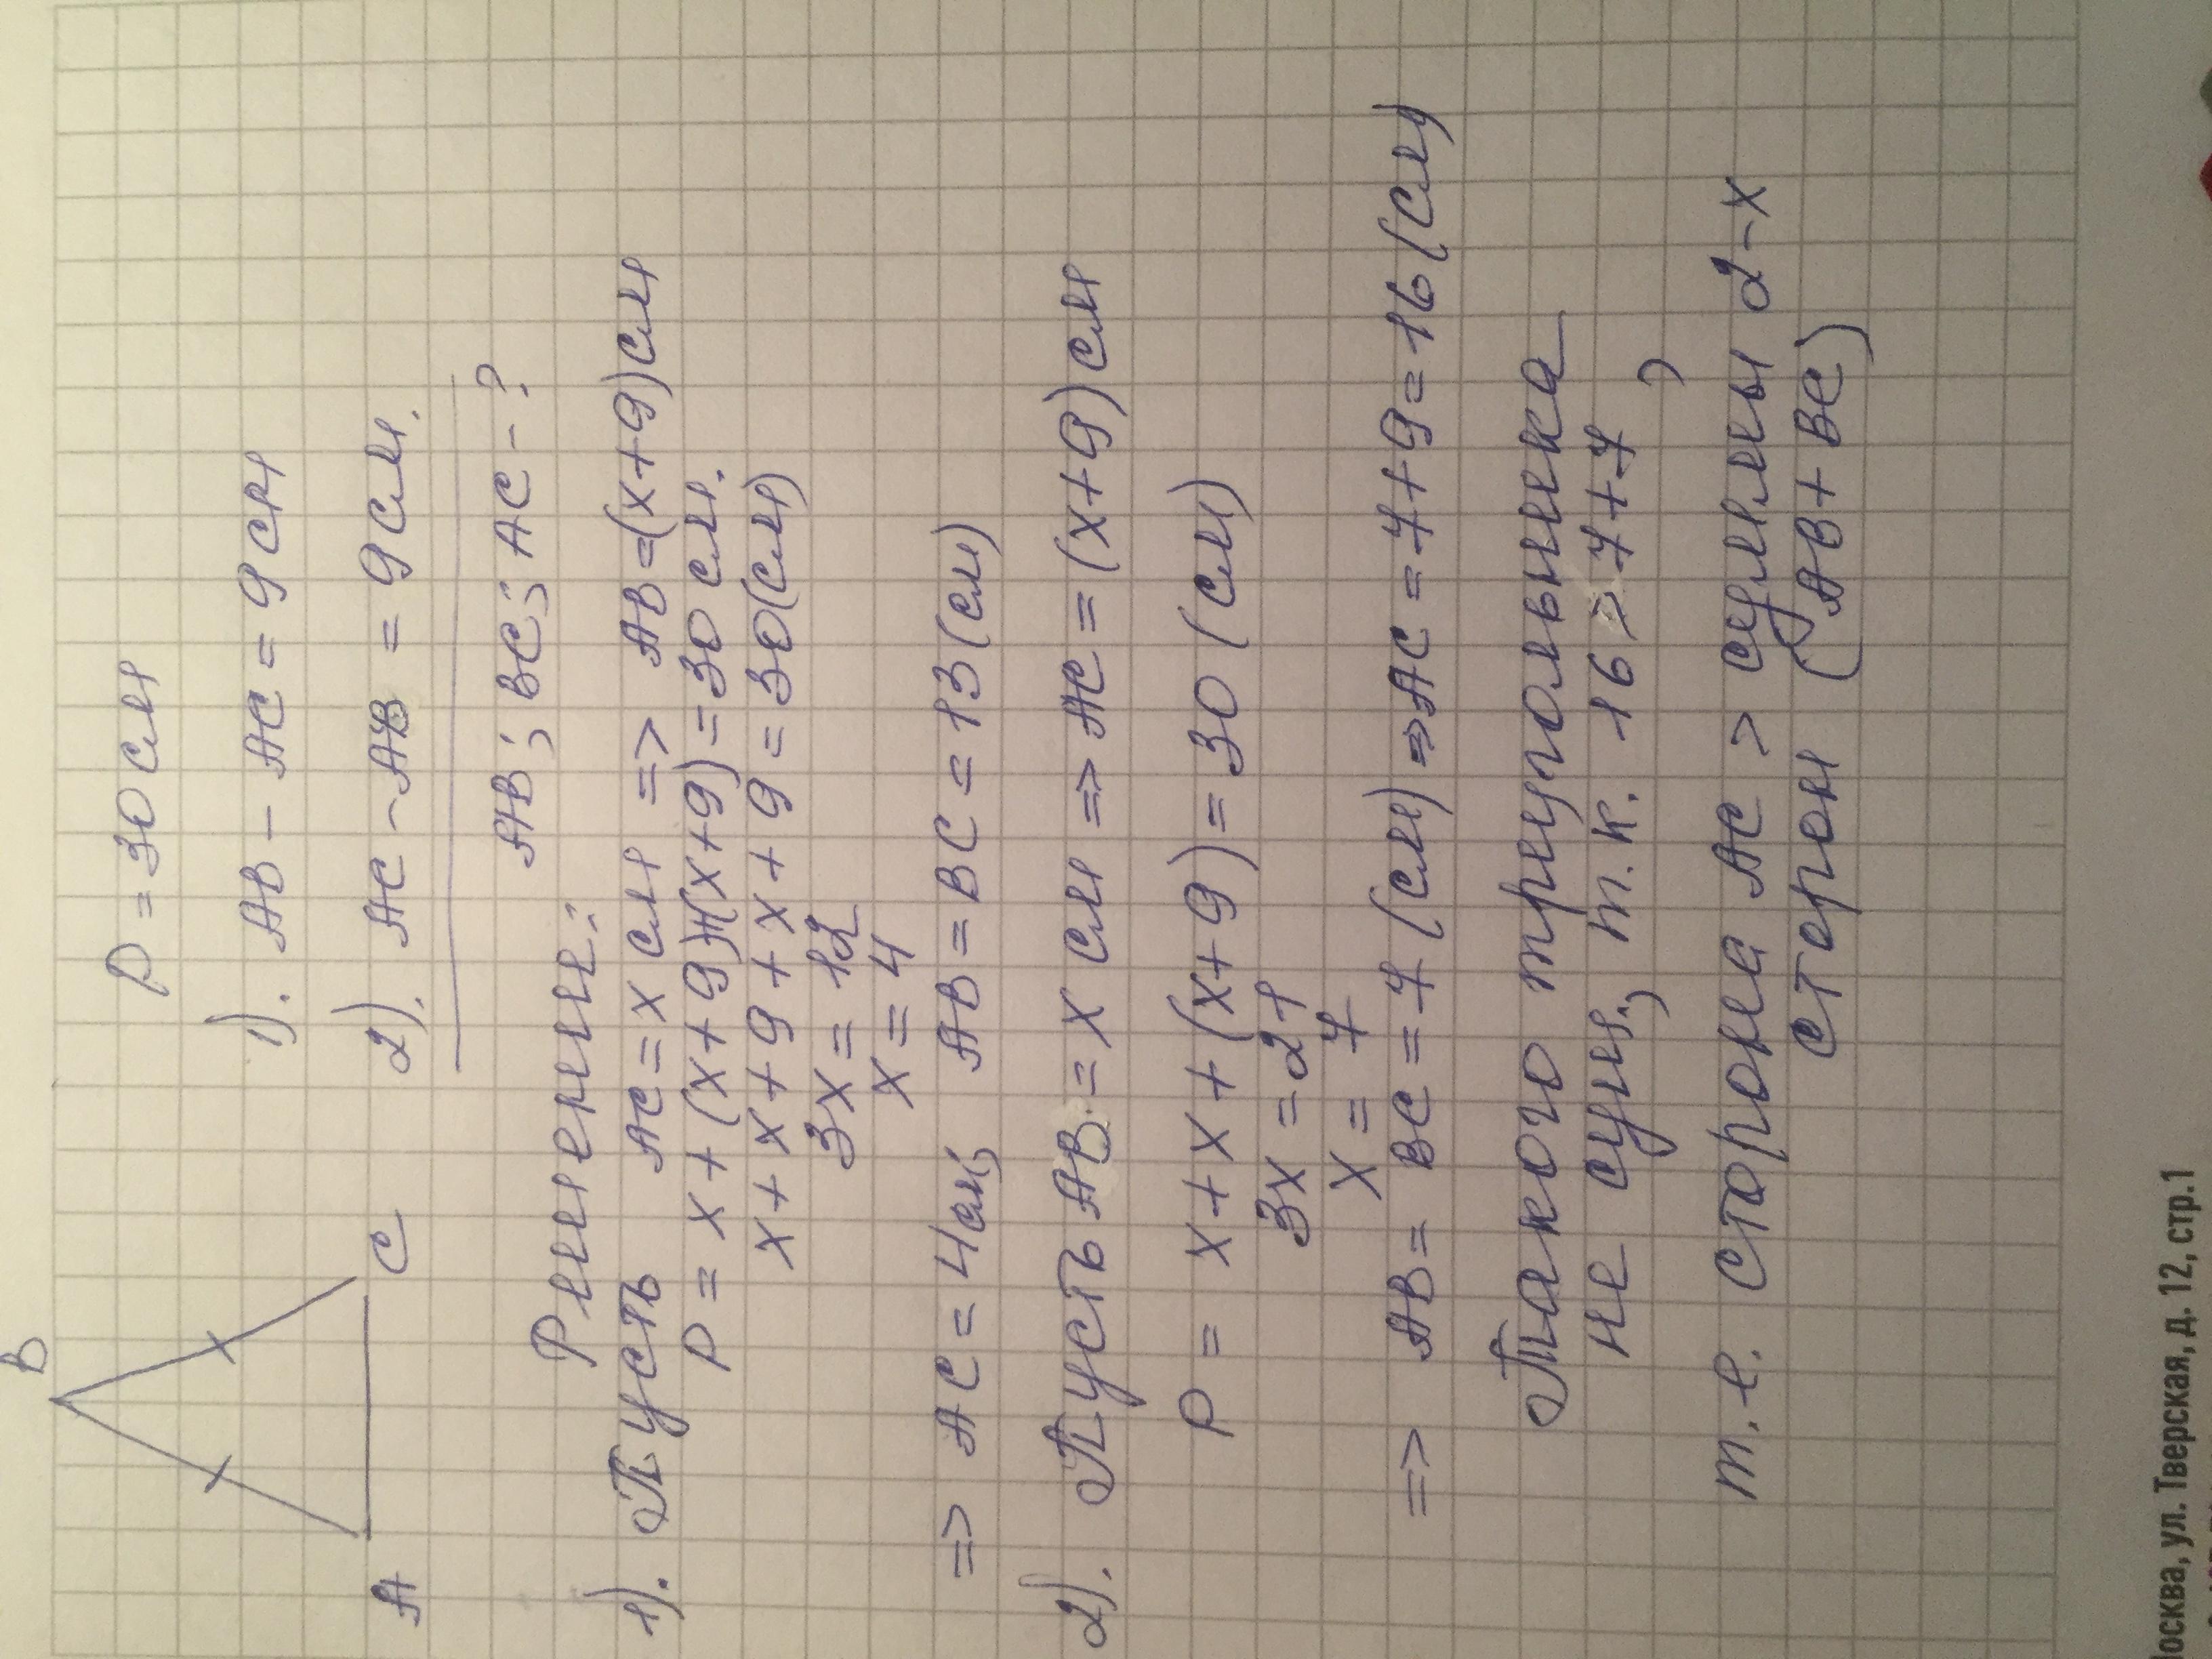 B
A
C
P = 30 см
1). AB - AC = 9 см
2). AC - AB = 9 см.
AB; BC; AC - ?
Решение:
1). Пусть AC = x см => AB = (x+9) см
P = x + (x+9)+(x+9) = 30 см.
x + x + 9 + x + 9 = 30 (см)
3x = 12
x = 4
=> AC = 4 см; AB = BC = 13 (см)
2). Пусть AB = x см => AC = (x+9) см
P = x + x + (x+9) = 30 (см)
3x = 21
x = 7
=> AB = BC = 7 (см) => AC = 7+9 = 16 (см)
Такого треугольника
не сущ., т.к. 16 > 7+7,
т.е. сторона AC > суммы 2-х
сторон (AB + BC)
Москва, ул. Тверская, д. 12, стр.1